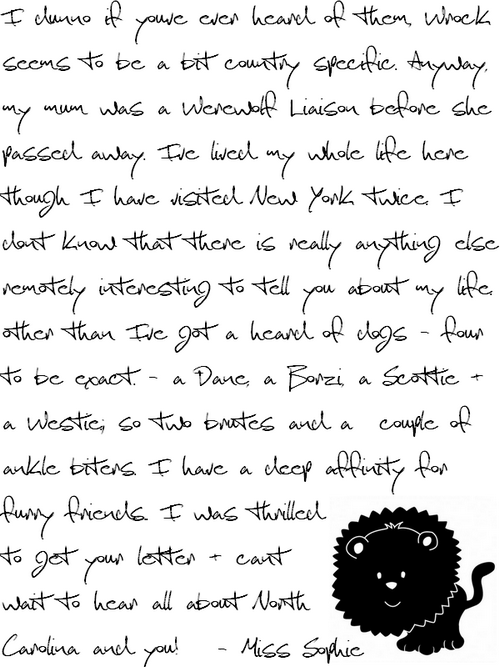 I dunno if youve ever heard of them, Wrock
seems to be a bit country specific. Anyway,
my mum was a Werewolf Liaison before she
passed away. Ive lived my whole life here
though I have visited New York twice. I
dont know that there is really anything else
remotely interesting to tell you about my life,
other than Ive got a heard of dogs - four
to be exact. - a Dane, a Borzi, a Scottie +
a Westie; so two brutes and a couple of
ankle biters. I have a deep affinity for
furry friends. I was thrilled
to get your letter + cant
wait to hear all about North
Carolina and you! - Miss Sophie